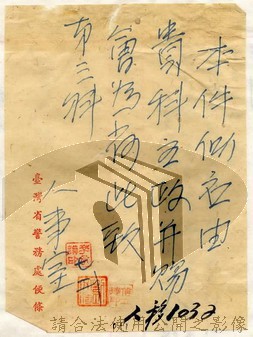 本件似宜由
貴科主政并賜
會為荷此致
第三科
人事室
臺灣省警務處便條
人移1032
請合法使用公開之影像